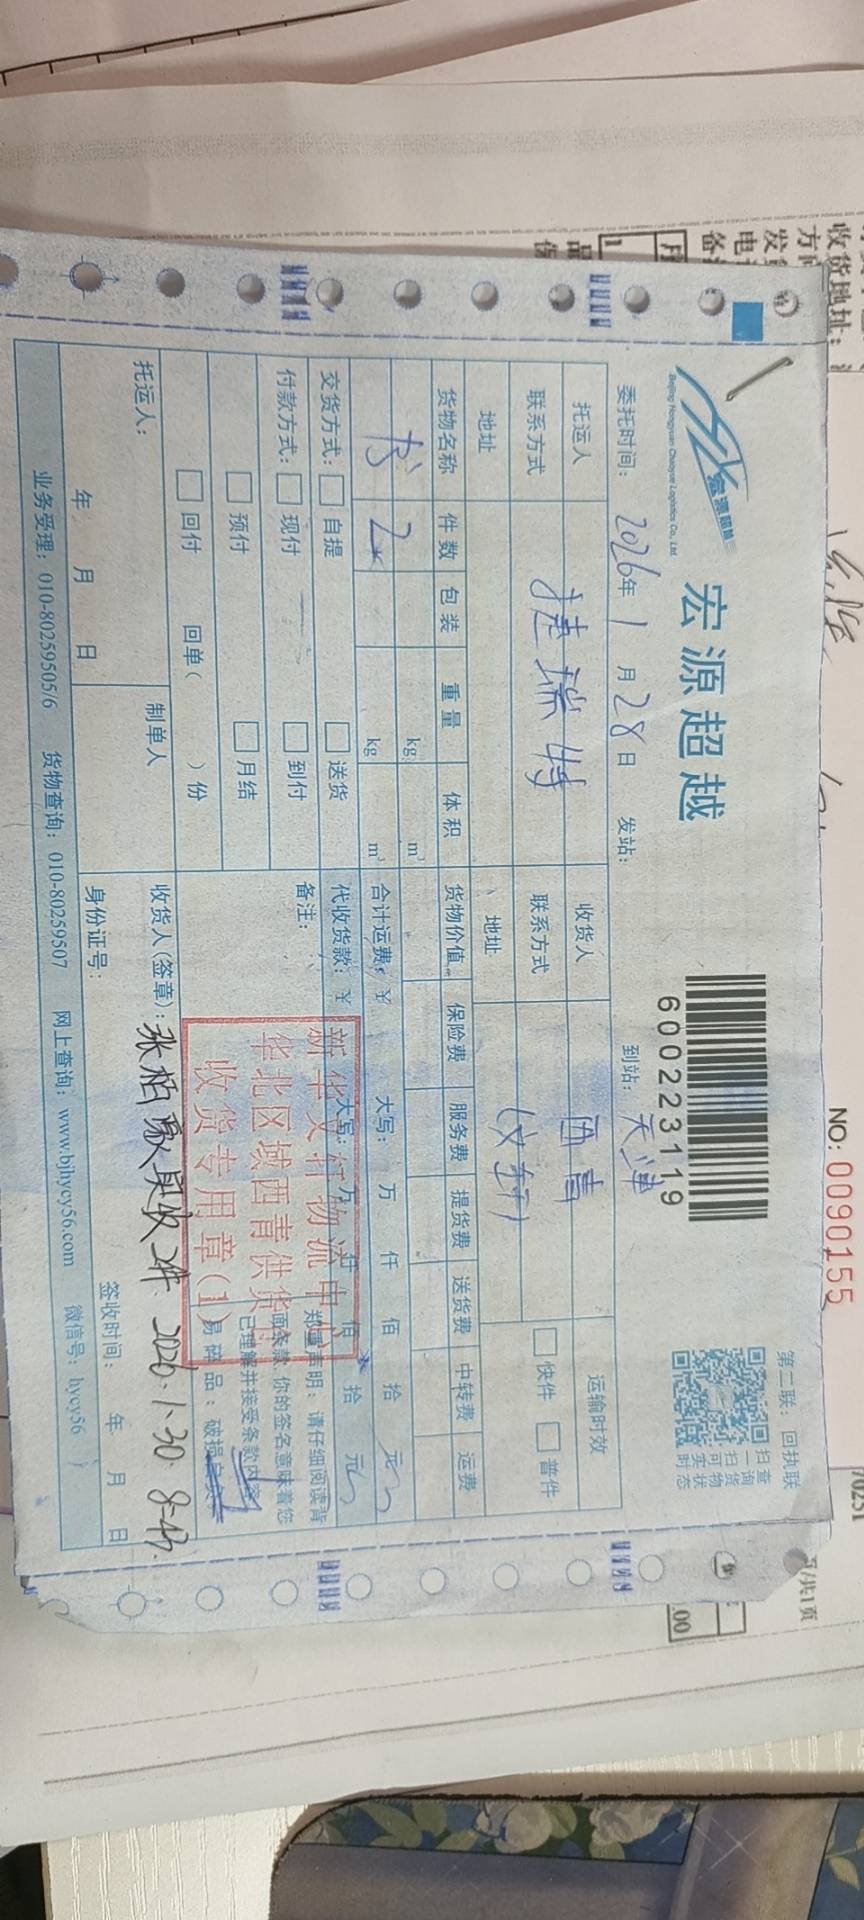 宏源超越
宏源超越
Beijing Hongyuan Chaoyue Logistics Co., Ltd
6002223119
第二联：回执联
扫一扫可实时
查询货物状态
委托时间：2026年1月28日 发站： 到站：天津
托运人 捷瑞特 收货人 西青 运输时效
联系方式 联系方式 (文轩) 快件 普件
地址 地址
货物名称 件数 包装 重量 体积 货物价值 保险费 服务费 提货费 送货费 中转费 运费
kg m³
书 2 kg m³ 合计运费：¥ 大写： 万 仟 佰 拾 元
交货方式： 自提 送货 代收货款：¥ 大写： 万 仟 佰 拾 元
付款方式： 现付 到付 备注：
预付 月结
回付 回单( )份
郑重声明：请仔细阅读背
面条款，你的签名意味着您
已理解并接受条款内容
易碎品：破损
新华文轩物流中心
华北区域西青供货
收货专用章(1)
托运人： 制单人 收货人(签章)：张柏 实收2件 2026.1.30. 8:43.
年 月 日 身份证号： 签收时间： 年 月 日
业务受理：010-80259505/6 货物查询：010-80259507 网上查询：www.bjhycy56.com 微信号：hycy56
NO: 0090155
收货地址：
方向
发货
电
备
页/共1页
.00
70251